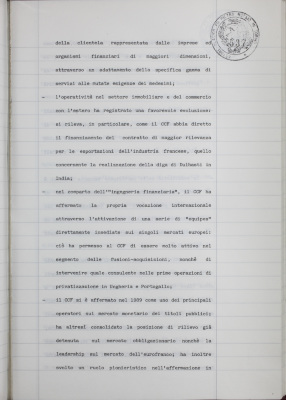 della clientela rappresentata dalle imprese ed
organismi finanziari di maggiori dimensioni,
attraverso un adattamento della specifica gamma di
servizi alle mutate esigenze dei medesimi;
- l'operatività nel settore immobiliare e del commercio
con l'estero ha registrato una favorevole evoluzione:
si rileva, in particolare, come il CCF abbia diretto
il finanziamento del contratto di maggior rilevanza
per le esportazioni dell'industria francese, quello
concernente la realizzazione della diga di Dulhasti in
India;
- nel comparto dell'"ingegneria finanziaria", il CCF ha
affermato la propria vocazione internazionale
attraverso l'attivazione di una serie di "equipes"
direttamente insediate sui singoli mercati europei:
ciò ha permesso al CCF di essere molto attivo nel
segmento delle fusioni-acquisizioni, nonché di
intervenire quale consulente nelle prime operazioni di
privatizzazione in Ungheria e Portogallo;
- il CCF si è affermato nel 1989 come uno dei principali
operatori sul mercato monetario dei titoli pubblici;
ha altresì consolidato la posizione di rilievo già
detenuta sul mercato obbligazionario nonché la
leadership sul mercato dell'eurofranco; ha inoltre
svolto un ruolo pionieristico nell'affermazione in